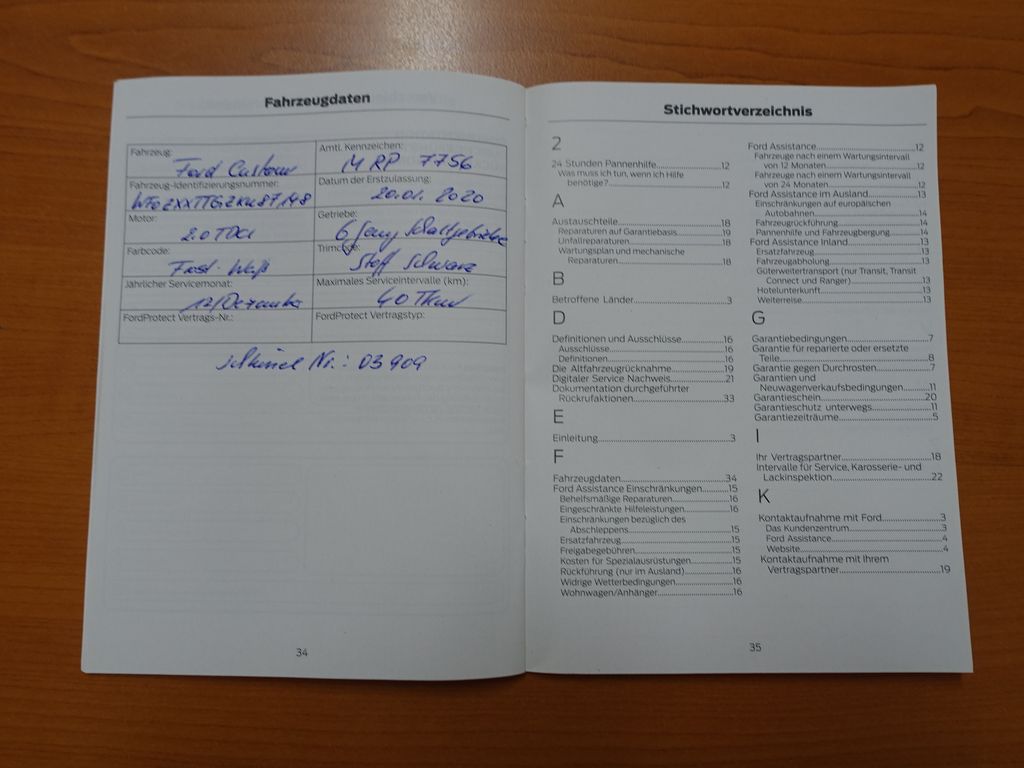 Fahrzeugdaten
Fahrzeug:
Ford Custom
Amtl. Kennzeichen:
M RP 7756
Fahrzeug-Identifizierungsnummer:
Datum der Erstzulassung:
20.01.2020
Motor:
2.0 TDCI
Getriebe:
6 Gang Schaltgetriebe
Farbcode:
Frost-Weiß
Trimcode:
Stoff Schwarz
Jährlicher Servicemonat:
12/Dezember
Maximales Serviceintervalle (km):
40 Tkm
FordProtect Vertrags-Nr.:
FordProtect Vertragstyp:
Nr.: 03909
34
Stichwortverzeichnis
2
24 Stunden Pannenhilfe 12
Was muss ich tun, wenn ich Hilfe
benötige? 12
A
Austauschteile 18
Reparaturen auf Garantiebasis 19
Unfallreparaturen 18
Wartungsplan und mechanische
Reparaturen 18
B
Betroffene Länder 3
D
Definitionen und Ausschlüsse 16
Ausschlüsse 16
Definitionen 16
Die Altfahrzeugrücknahme 19
Digitaler Service Nachweis 21
Dokumentation durchgeführter
Rückrufaktionen 33
E
Einleitung 3
F
Fahrzeugdaten 34
Ford Assistance Einschränkungen 15
Behelfsmäßige Reparaturen 16
Eingeschränkte Hilfeleistungen 16
Einschränkungen bezüglich des
Abschleppens 15
Ersatzfahrzeug 15
Freigabegebühren 15
Kosten für Spezialausrüstungen 15
Rückführung (nur im Ausland) 16
Widrige Wetterbedingungen 16
Wohnwagen/Anhänger 16
Ford Assistance 12
Fahrzeuge nach einem Wartungsintervall
von 12 Monaten 12
Fahrzeuge nach einem Wartungsintervall
von 24 Monaten 12
Ford Assistance im Ausland 13
Einschränkungen auf europäischen
Autobahnen 14
Fahrzeugrückführung 14
Pannenhilfe und Fahrzeugbergung 14
Ford Assistance Inland 13
Ersatzfahrzeug 13
Fahrzeugabholung 13
Güterweitertransport (nur Transit, Transit
Connect und Ranger) 13
Hotelunterkunft 13
Weiterreise 13
G
Garantiebedingungen 7
Garantie für reparierte oder ersetzte
Teile 8
Garantie gegen Durchrosten 7
Garantien und
Neuwagenverkaufsbedingungen 11
Garantieschein 20
Garantieschutz unterwegs 11
Garantiezeiträume 5
I
Ihr Vertragspartner 18
Intervalle für Service, Karosserie- und
Lackinspektion 22
K
Kontaktaufnahme mit Ford 3
Das Kundenzentrum 3
Ford Assistance 4
Website 4
Kontaktaufnahme mit Ihrem
Vertragspartner 19
35